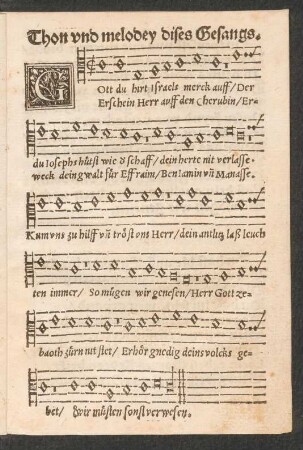 Thon vnd melodey dises Gesangs.
GOtt du hirt Israels merck auff / Der
Erschein Herr auff den Cherubin / Er-
du Iosephs hütst wie d schaff / dein herte nit verlasse.
weck dein gwalt für Effraim / Beniamin uñ Manasse.
Kum vns zu hülff uñ tröst vns Herr / dein antlitz laß leuch
ten immer / So mügen wir genesen / Herr Gott ze-
baoth zürn nit stet / Erhör gnedig deins volcks ge-
bet / Wir müsten sonst verwesen.